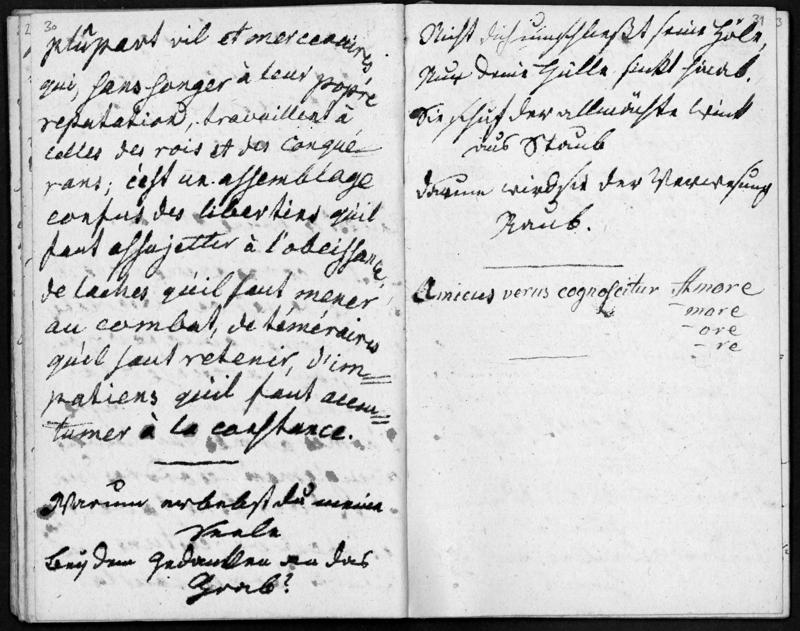 30
plûpart vil et mercenaires,
qui, sans songer à leur propre
reputation, travaillent à
celles des rois et des conqué-
rans; c'est un assemblage
confus des libertins qu'il
faut assujetter à l'obeissance,
de laches qu'il faut mener
au combat, de témeraires
qu'il faut retenir, d'im=
patiens qu'il faut accou=
tumer à la constance.
Warum erbebst du meine
Seele
Bey dem Gedanken an das
Grab?
31
Nicht dich umschließt seine Höle,
Nur deine Hülle sinkt hinab.
Sie schuf der allmächte Wink
aus Staub
darum wird sie der Verwesung
Raub.
Amicus verus cognoscitur Amore
- more
- ore
- re